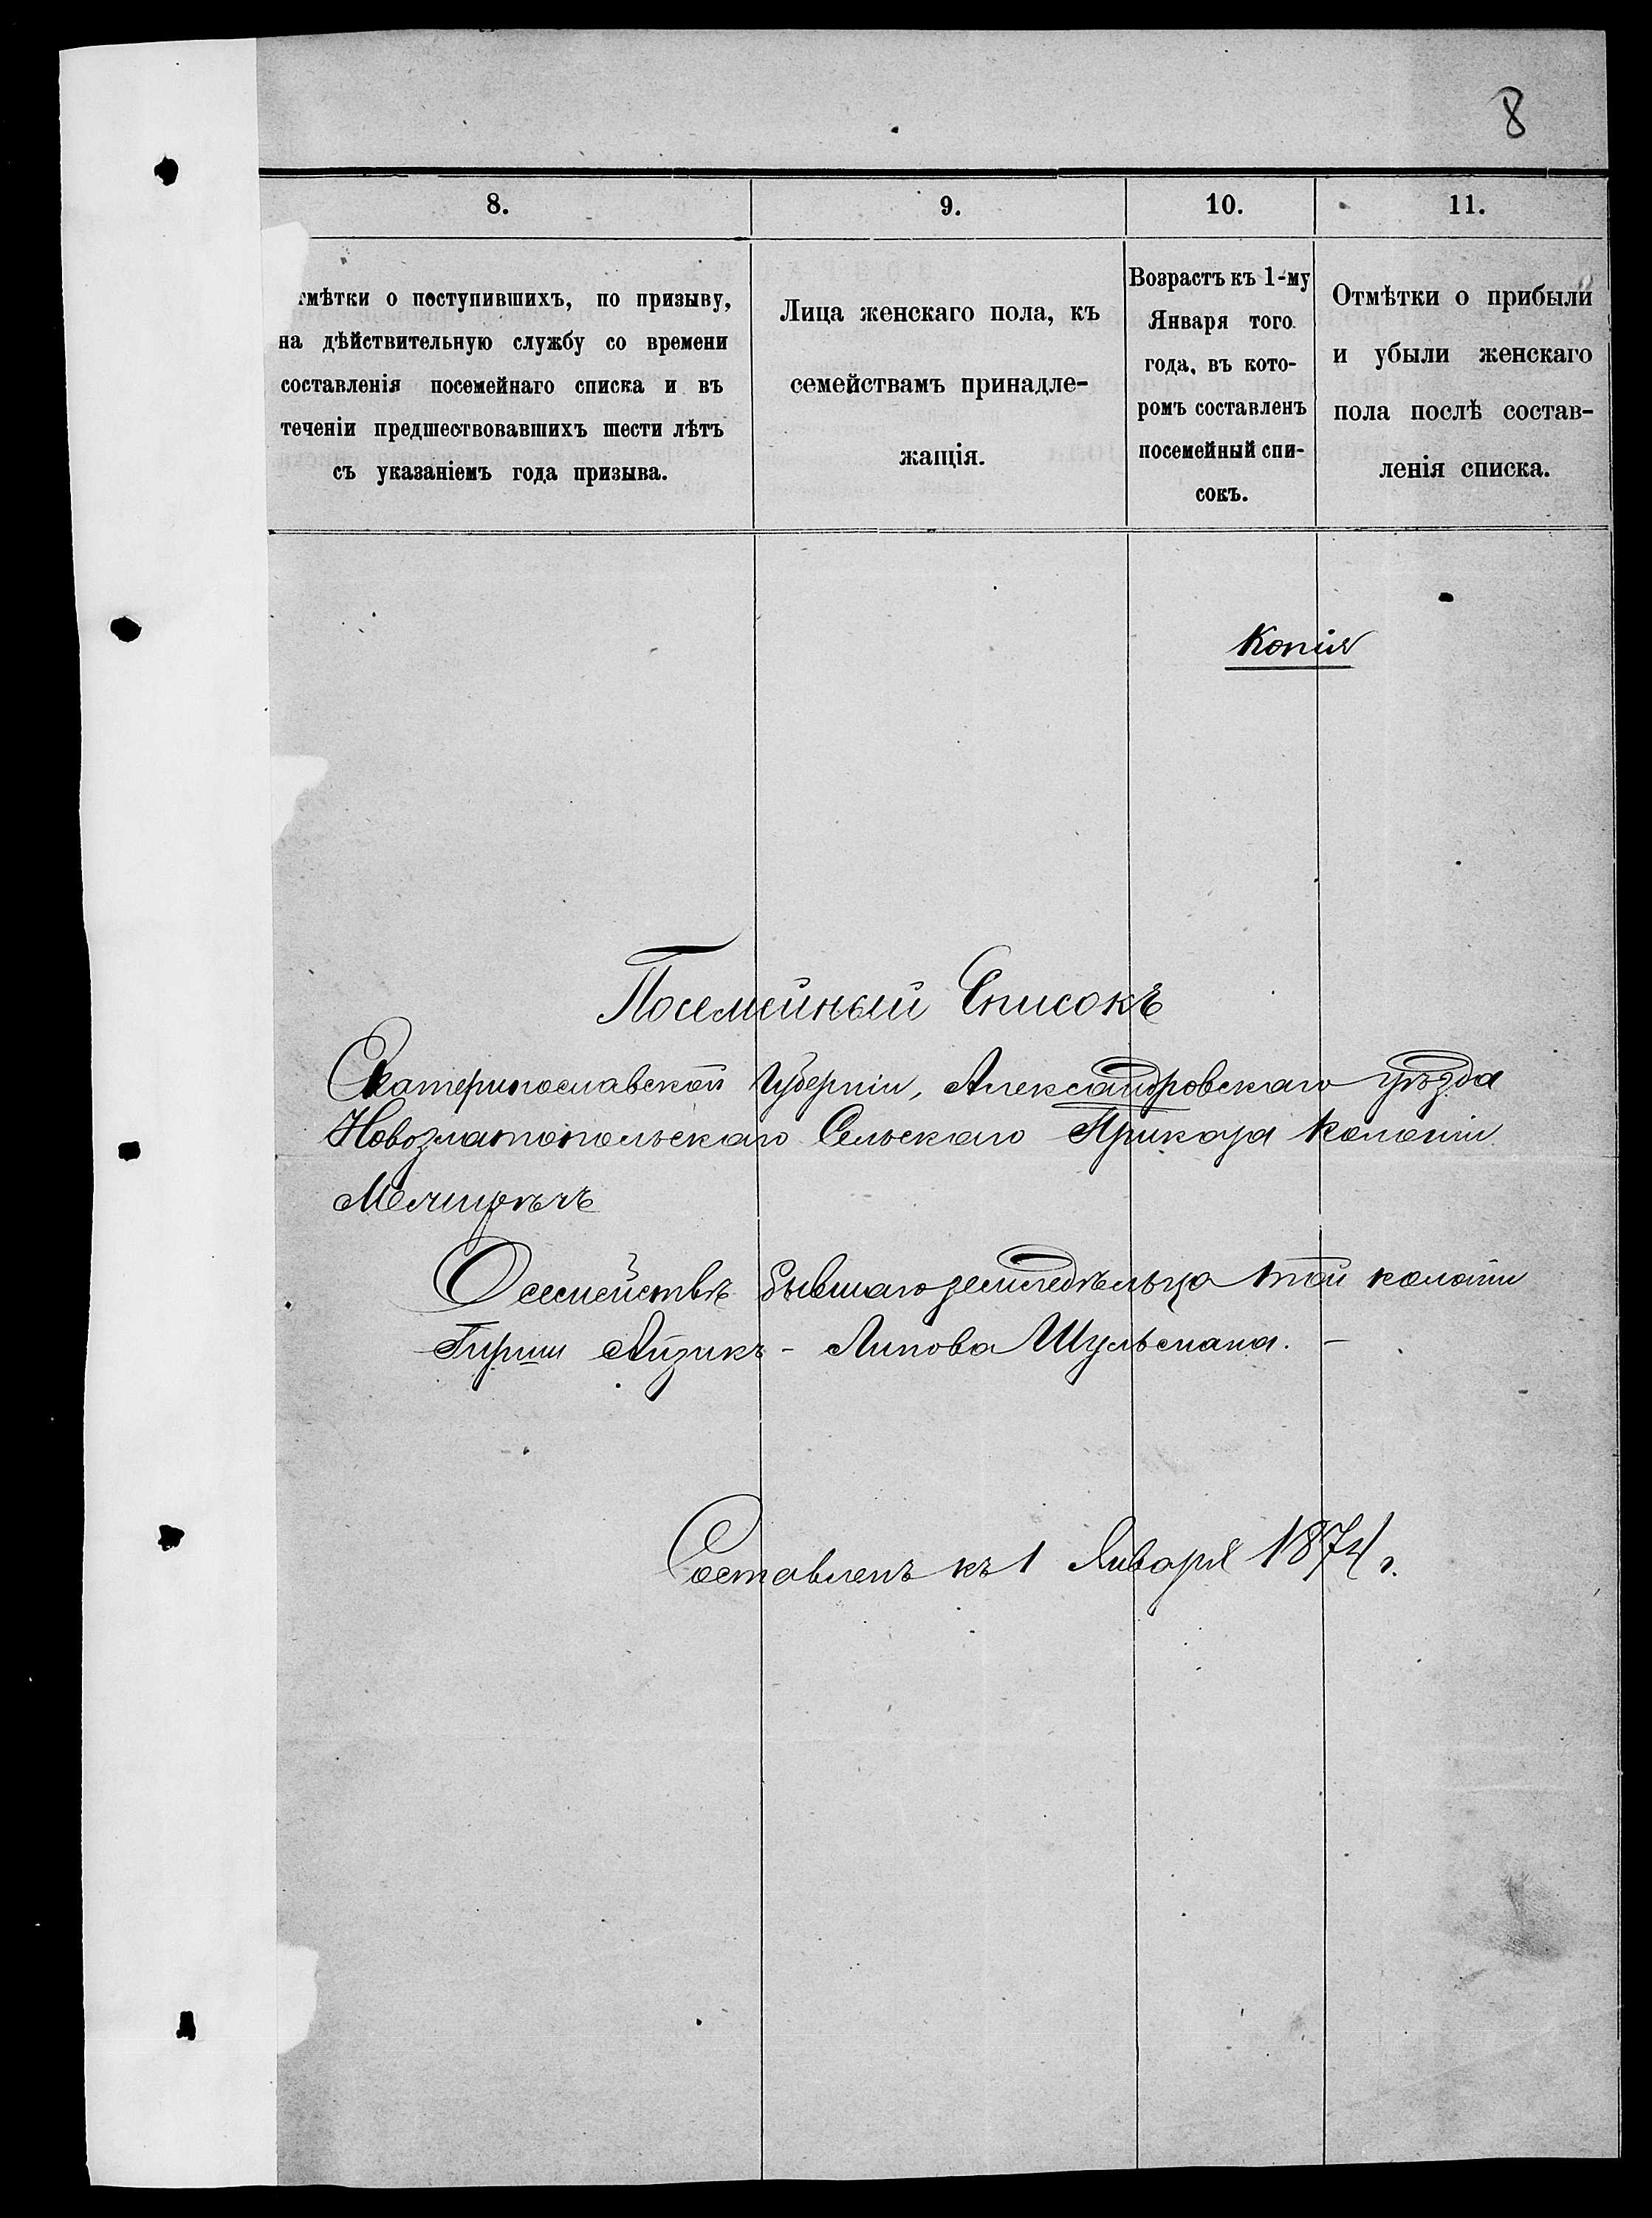 8
8.
9.
10.
11.
тмѣтки о поступившихъ, по призыву,
на дѣйствительную службу со времени
составленія посемейнаго списка и въ
теченіи предшествовавшихъ шести лѣтъ
съ указаніемъ года призыва.
Лица женскаго пола, къ
семействамъ принадле-
жащія.
Возрастъ къ 1-му
Января того
года, въ кото-
ромъ составленъ
посемейный спи-
сокъ.
Отмѣтки о прибыли
и убыли женскаго
пола послѣ состав-
ленія списка.
Копія
Посемейный Списокъ
Екатеринославской Губерніи, Александровскаго уѣзда
Новозлатопольскаго Сельскаго Приказа Колоніи
О семействѣ бывшаго земледѣльца той колоніи
Гирши Айзикъ - Липова Шульмана. -
Составленъ къ 1 Января 1874 г.